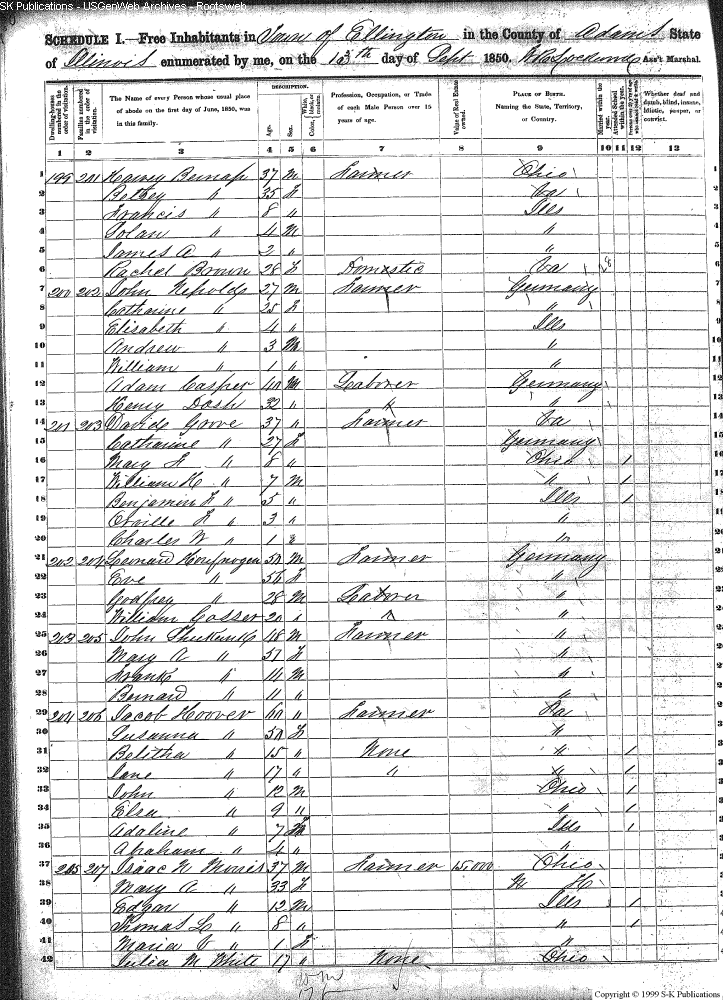 SK Publications - USGenWeb Archives - Rootsweb
SCHEDULE I.—Free Inhabitants in Town of Ellington in the County of Adams State
of Illinois enumerated by me, on the 13th day of Sept 1850. Ass't Marshal.
Dwelling-houses numbered in the order of visitation. Families numbered in the order of visitation. The Name of every Person whose usual place of abode on the first day of June, 1850, was in this family. DESCRIPTION. Age. Sex. Color, White, black, or mulatto. Profession, Occupation, or Trade of each Male Person over 15 years of age. Value of Real Estate owned. PLACE OF BIRTH. Naming the State, Territory, or Country. Married within the year. Attended School within the year. Whether deaf and dumb, blind, insane, idiotic, pauper, or convict.
1 2 3 4 5 6 7 8 9 10 11 12 13
1 199 201 Harvey 37 M Farmer Ohio
2 Betsey " 35 F Va
3 Francis " 8 " Ills
4 " 4 M "
5 James A " 2 " "
6 Rachel Brown 28 F Domestic Va
7 200 202 John 27 M Farmer Germany
8 Catharine " 25 F "
9 Elisabeth " 4 " Ills
10 Andrew " 3 M "
11 William " 1 " "
12 Adam Casper 40 M Laborer Germany
13 Henry Dosh 32 " " "
14 201 203 David Goove 37 " Farmer Va
15 Catharine " 27 F Germany
16 Mary F " 8 " Ohio 1
17 William H " 7 M " 1
18 Benjamin F " 5 " Ills 1
19 Orville F " 3 " "
20 Charles W " 1 "
21 202 204 Leonard 50 M Farmer Germany
22 Eve " F "
23 Godfrey " 28 M Laborer "
24 William Cosser 20 " " "
25 203 205 John 48 M Farmer "
26 Mary A " 51 F "
27 Frank " 14 M "
28 Bernard " 11 " "
29 204 206 Jacob Hoover 60 " Farmer Pa
30 Susanna " 50 F "
31 Belitha " 15 " None " 1
32 Jane " 17 " " " 1
33 John " 12 M Ohio 1
34 " 9 " " 1
35 Adaline " 7 F Ills 1
36 Abraham " 4 " "
37 205 207 Isaac N Morris 37 M Farmer 15,000 Ohio
38 Mary A " 33 F N H
39 Edgar " 12 M Ills 1
40 Thomas L " 8 " " 1
41 Maria C " 1 F "
42 Julia M White 17 " None Ohio
Copyright © 1999 S-K Publications